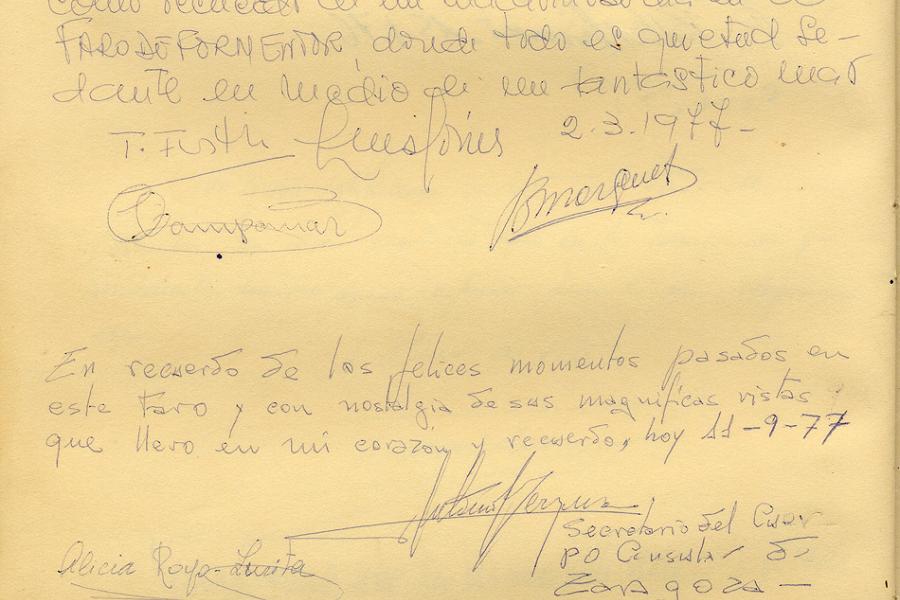 como recuerdo de un
FARO DE FORMENTOR, donde todo es quietud se-
dante en medio de un fantástico mar
2.3.1977-
Campomar
En recuerdo de los felices momentos pasados en
este faro y con nostalgia de sus magnificas vistas
que llevo en mi corazón y recuerdo, hoy 11-9-77
Secretario del Cuer-
po Consular de
Zaragoza -
Alicia Royo-